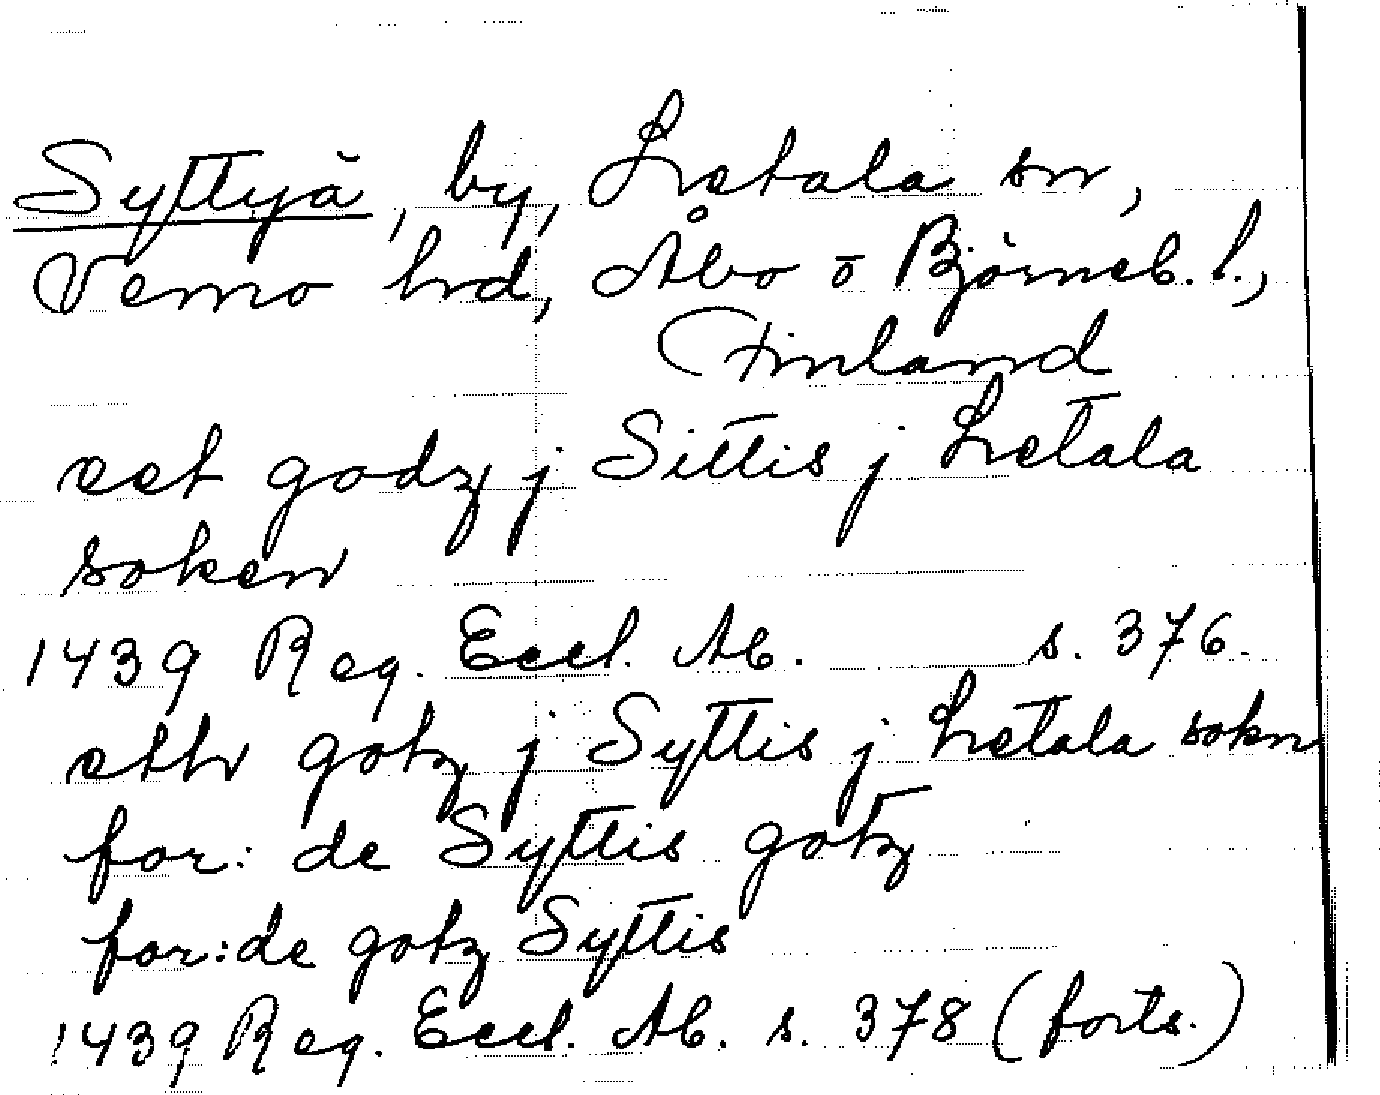 Syttyä, by, Letala sn,
Vemo hrd, Åbo o Björneb. l.,
Finland
eet godz j Sittis j Letala
soken
1439 Reg. Eccl. Ab. s. 376.
etth gotz j Syttis j Letala sokn
for: de Syttis gotz
for:de gotz Syttis
1439 Reg. Eccl. Ab. s. 378 (forts.)